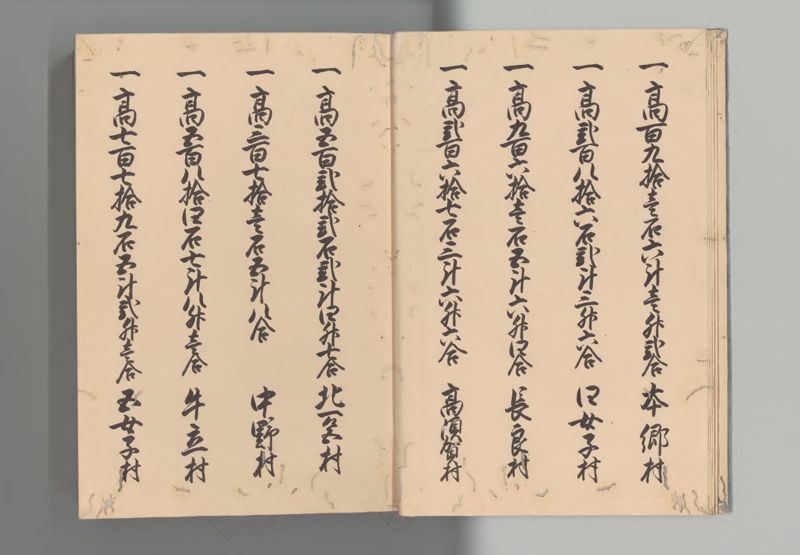 一高百九拾壱石六斗壱升弐合 本郷村
一高弐百八拾六石弐斗三升六合 四女子村
一高九百六拾壱石五斗六升四合 長良村
一高弐百六拾七石三斗六升六合 高須賀村
一高五百弐拾弐石弐斗四升七合 北一色村
一高三百七拾壱石五斗八合 中野村
一高五百八拾四石七斗八升壱合 牛立村
一高七百七拾九石五斗弐升壱合 五女子村